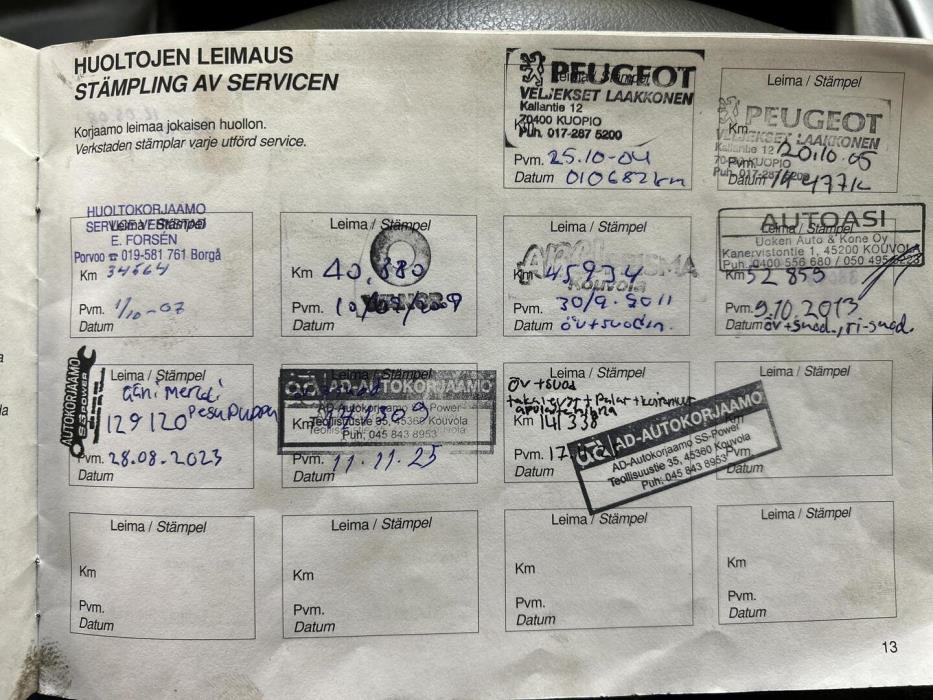 HUOLTOJEN LEIMAUS
STÄMPLING AV SERVICEN
Korjaamo leimaa jokaisen huollon.
Verkstaden stämplar varje utförd service.
PEUGEOT
VELJEKSET LAAKKONEN
Kallantie 12
70400 KUOPIO
Puh. 017-287 5200
Pvm. 25.10-04
Datum 010682 km
Leima / Stämpel
PEUGEOT
VELJEKSET LAAKKONEN
Km
Kallantie 12
KUOPIO
Pvm. 20.10.05
Datum
HUOLTOKORJAAMO
Leima / Stämpel
E. FORSÉN
Porvoo ☎ 019-581 761 Borgå
Km 34664
Pvm. 1/10-07
Datum
Leima / Stämpel
Km 40 880
Pvm.
Datum
Leima / Stämpel
Km 45934
Kouvola
Pvm. 30/9. 2011
Datum öv+suodin.
AUTOASI
Leima / Stämpel
Uoken Auto & Kone Oy
Kanervistontie 1, 45200 KOUVOLA
Puh. 0400 556 680 / 050
Km 52 859
Pvm. 9.10.2013
Datum öv+suod., ri-suod.
AUTOKORJAAMO
SS-POWER
Leima / Stämpel
Km 129120
Pvm. 28.08.2023
Datum
AD-AUTOKORJAAMO
AD-Autokorjaamo SS-Power
Km
Teollisuustie 35, 45360 Kouvola
Puh: 045 843 8953
Pvm. 11.11.25
Datum
Leima / Stämpel
öv + suod
Km 141 338
Pvm. 17.
Datum
Leima / Stämpel
AD-AUTOKORJAAMO
AD-Autokorjaamo SS-Power
Teollisuustie 35, 45360 Kouvola
Puh: 045 843 8953
Pvm.
Datum
Leima / Stämpel
Km
Pvm.
Datum
Leima / Stämpel
Km
Pvm.
Datum
Leima / Stämpel
Km
Pvm.
Datum
Leima / Stämpel
Km
Pvm.
Datum
13